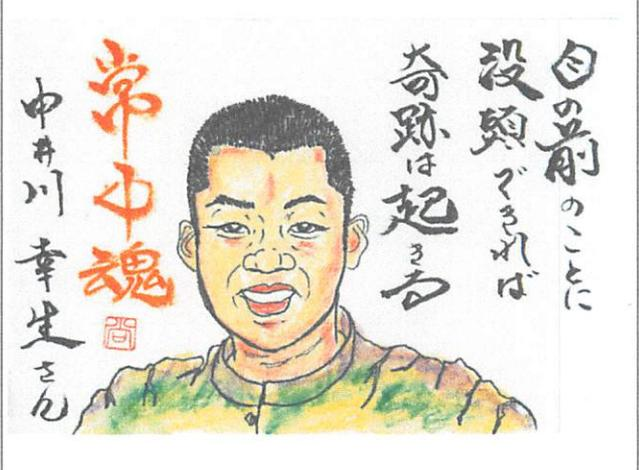 目の前のことに
没頭できれば
奇跡は起きる
常中魂
尚
中井川 幸生さん